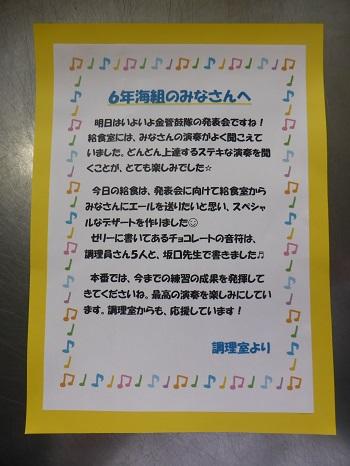 6年海組のみなさんへ
明日はいよいよ金管鼓隊の発表会ですね！
給食室には、みなさんの演奏がよく聞こえて
いました。どんどん上達するステキな演奏を聞
くことが、とても楽しみでした☆
今日の給食は、発表会に向けて給食室から
みなさんにエールを送りたいと思い、スペシャ
ルなデザートを作りました☺
ゼリーに書いてあるチョコレートの音符は、
調理員さん5人と、坂口先生で書きました♬
本番では、今までの練習の成果を発揮して
きてくださいね。最高の演奏を楽しみにしてい
ます。調理室からも、応援しています！
調理室より